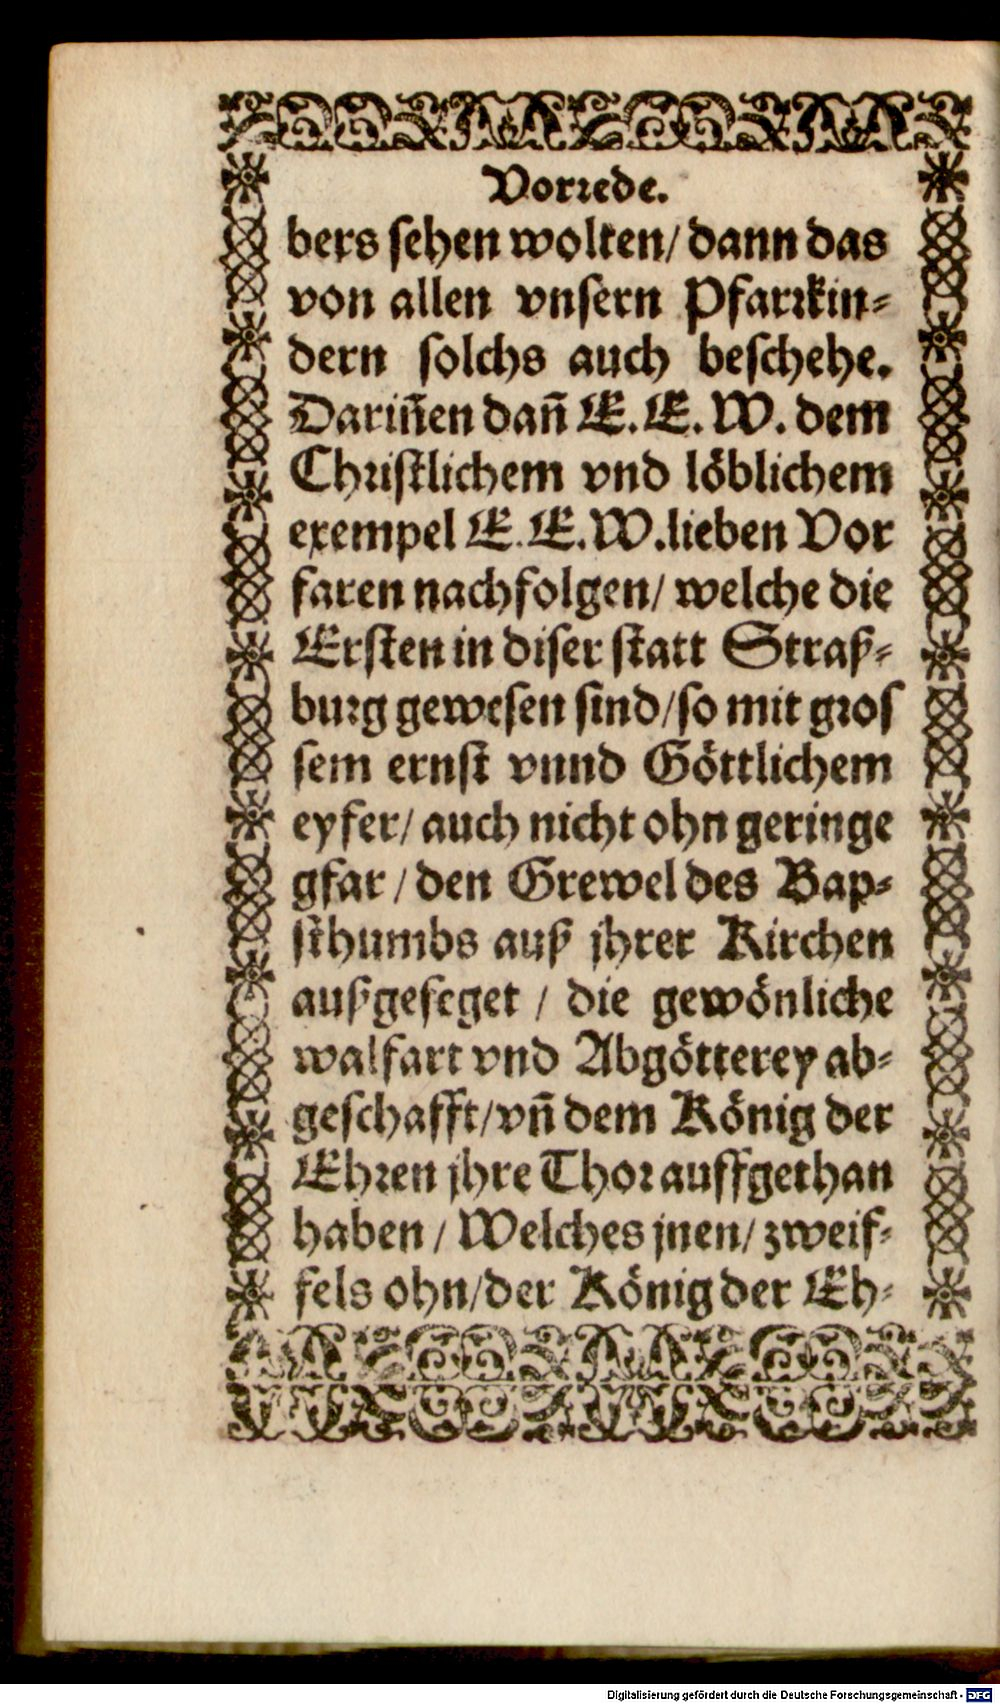 Vorrede.
bers sehen wolten/ dann das
von allen vnsern Pfarrkin-
dern solchs auch beschehe.
Dariñen dañ E. E. W. dem
Christlichem vnd löblichem
exempel E. E. W. lieben Vor
faren nachfolgen/ welche die
Ersten in diser statt Straß-
burg gewesen sind/ so mit gros
sem ernst vnnd Göttlichem
eyfer/ auch nicht ohn geringe
gfar / den Grewel des Bap-
sthumbs auß jhrer Kirchen
außgefeget / die gewönliche
walfart vnd Abgötterey ab-
geschafft/ vñ dem König der
Ehren jhre Thor auffgethan
haben / Welches jnen/ zweif-
fels ohn/ der König der Eh-
Digitalisierung gefördert durch die Deutsche Forschungsgemeinschaft - DFG